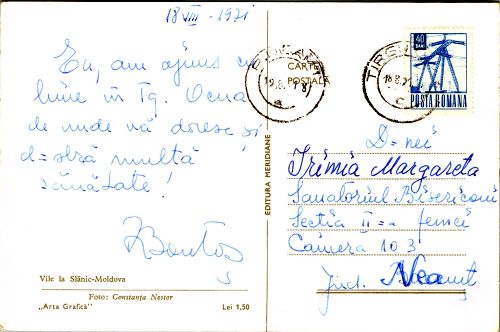 18 VIII - 1971
Eu, am ajuns cu
bine în Tg. Ocna
de unde vă doresc și
d-stră multă
sănătate!
CARTE
POȘTALĂ
TIRGU
18.8.71
40
BANI
POSTA ROMANA
D-nei
Irimia Margareta
Sanatoriul Bisericani
Secția II-a femei
Camera 103
Jud. Neamț
EDITURA MERIDIANE
Vile la Slănic-Moldova
Foto: Constanța Nestor
„Arta Grafică” Lei 1,50